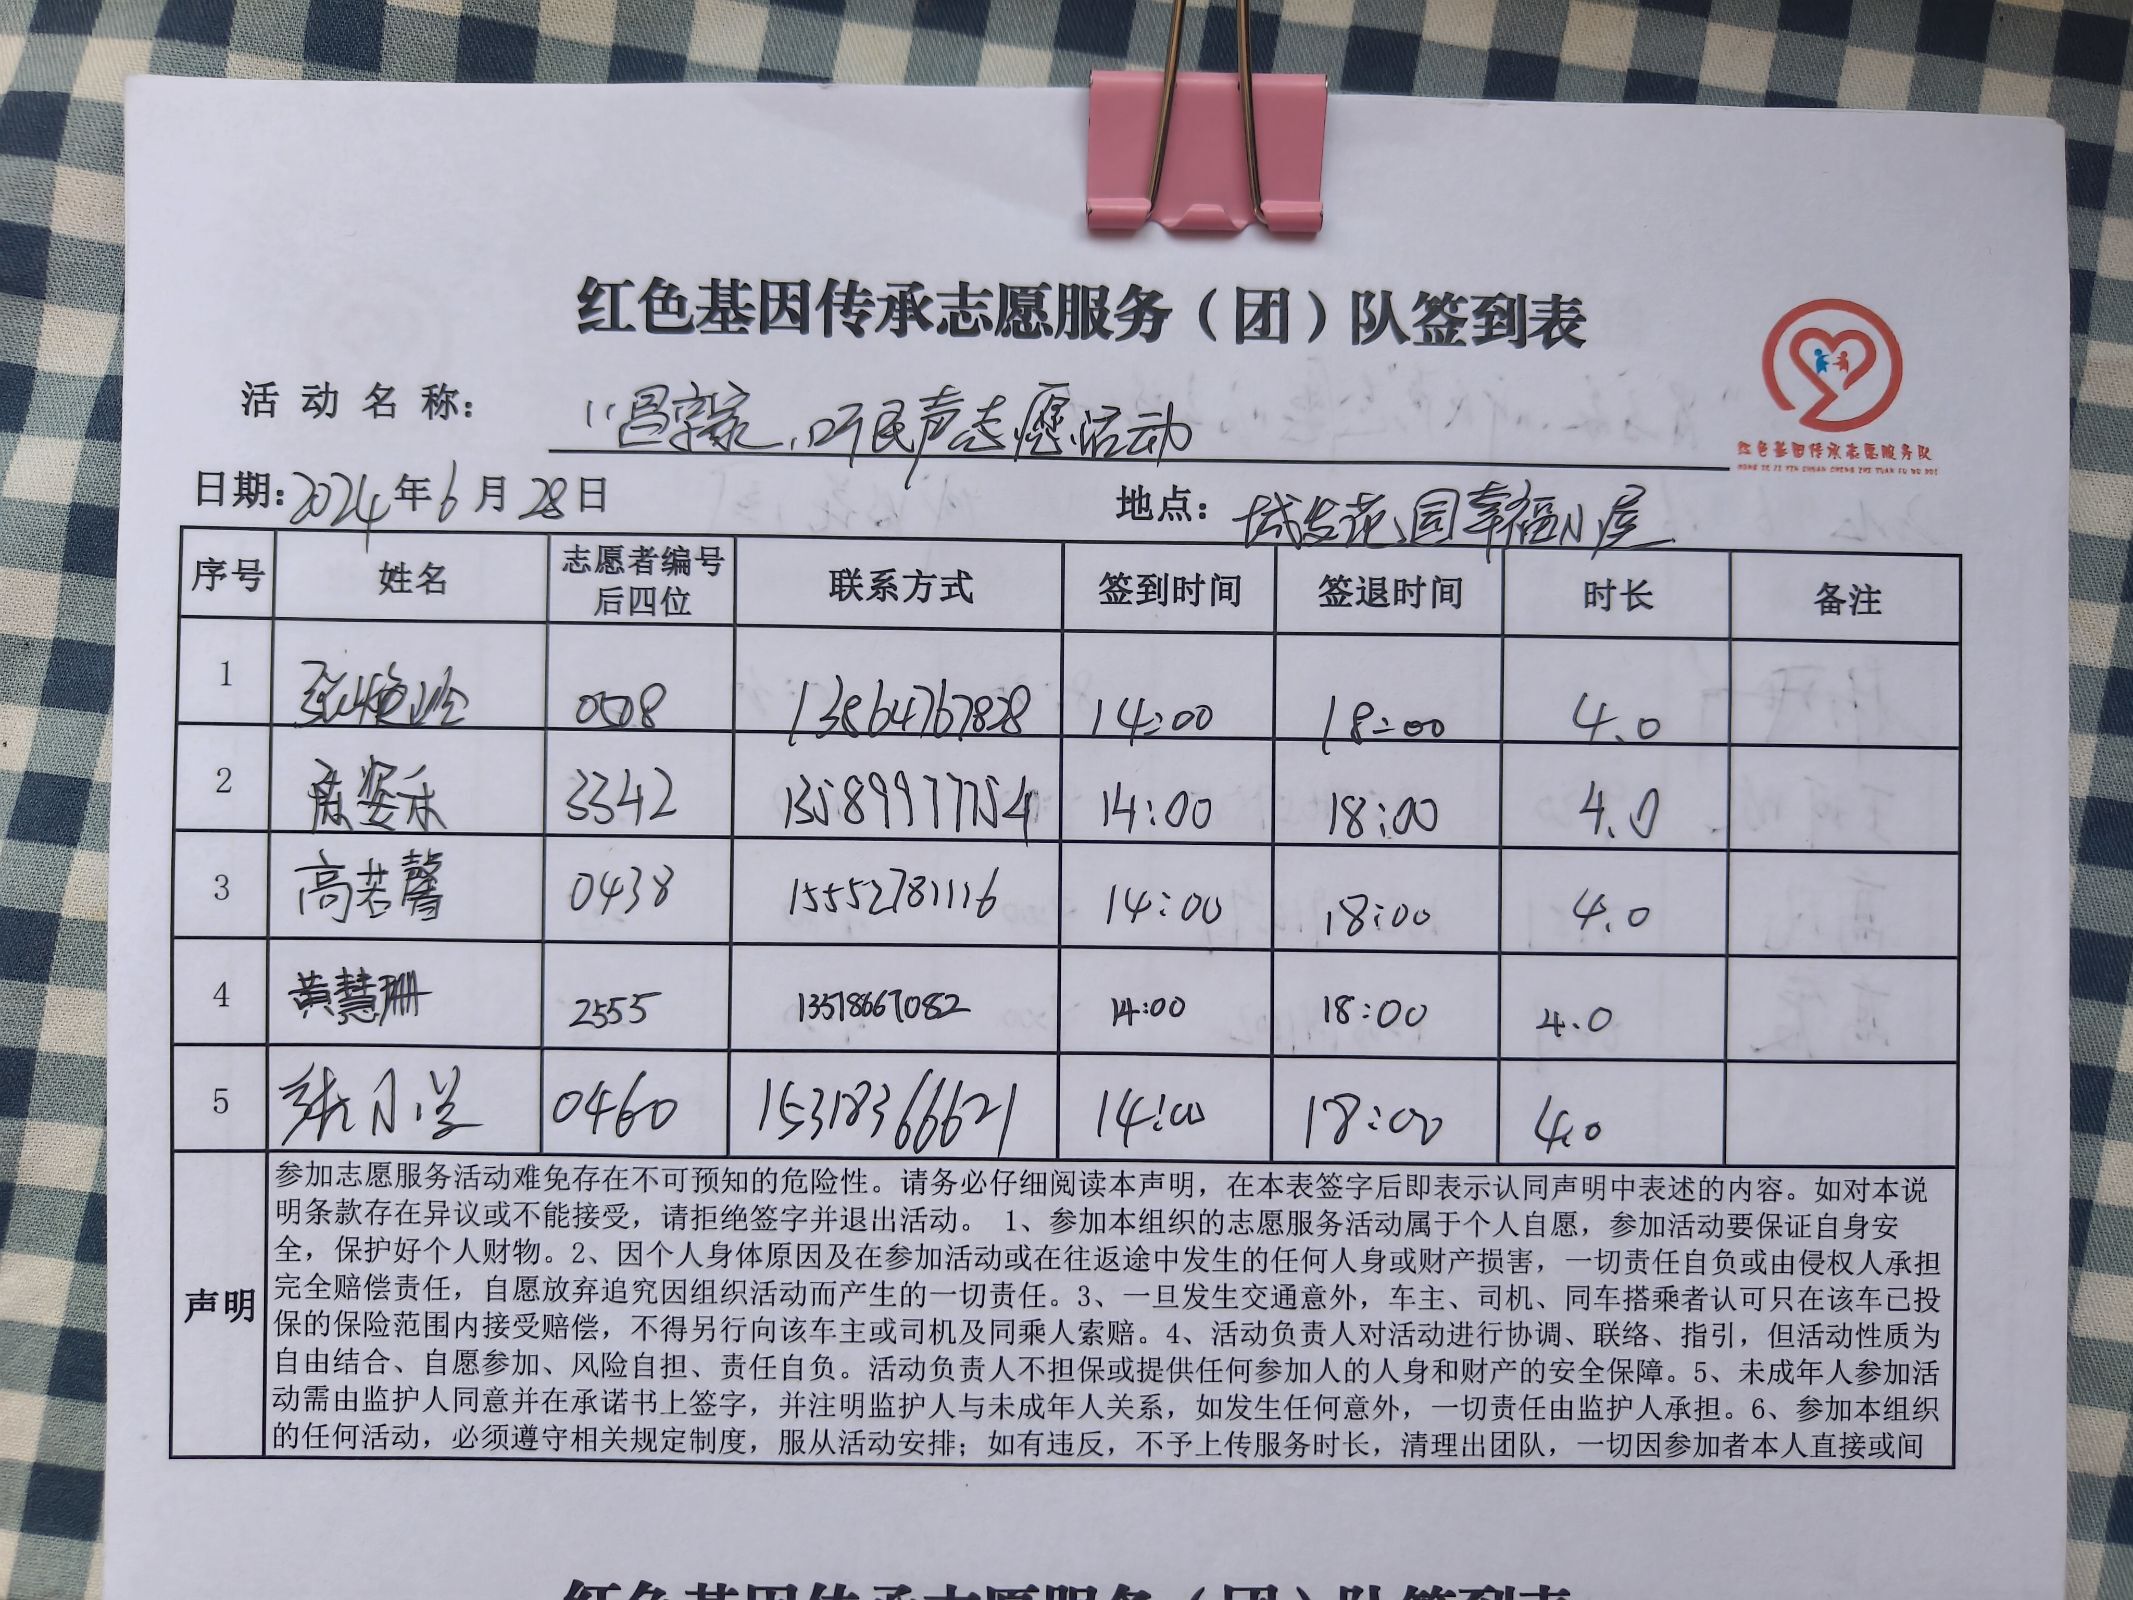 红色基因传承志愿服务（团）队签到表
活 动 名 称： 听民声志愿活动
红色基因传承志愿服务队
HONG SE JI YIN CHUAN CHENG ZHI YUAN FU WU DUI
日期:2024年6月28日 地点：城发花园幸福小屋
序号 姓名 志愿者编号后四位 联系方式 签到时间 签退时间 时长 备注
1 张 13864767828 14:00 18:00 4.0
2 陈姿禾 3342 13589977754 14:00 18:00 4.0
3 高若馨 0438 15552781116 14:00 18:00 4.0
4 黄慧珊 2555 13518667082 14:00 18:00 4.0
5 张 0460 15318366621 14:00 18:00 4.0
声明
参加志愿服务活动难免存在不可预知的危险性。请务必仔细阅读本声明，在本表签字后即表示认同声明中表述的内容。如对本说
明条款存在异议或不能接受，请拒绝签字并退出活动。 1、参加本组织的志愿服务活动属于个人自愿，参加活动要保证自身安
全，保护好个人财物。2、因个人身体原因及在参加活动或在往返途中发生的任何人身或财产损害，一切责任自负或由侵权人承担
完全赔偿责任，自愿放弃追究因组织活动而产生的一切责任。3、一旦发生交通意外，车主、司机、同车搭乘者认可只在该车已投
保的保险范围内接受赔偿，不得另行向该车主或司机及同乘人索赔。4、活动负责人对活动进行协调、联络、指引，但活动性质为
自由结合、自愿参加、风险自担、责任自负。活动负责人不担保或提供任何参加人的人身和财产的安全保障。5、未成年人参加活
动需由监护人同意并在承诺书上签字，并注明监护人与未成年人关系，如发生任何意外，一切责任由监护人承担。6、参加本组织
的任何活动，必须遵守相关规定制度，服从活动安排；如有违反，不予上传服务时长，清理出团队，一切因参加者本人直接或间
红色基因传承志愿服务（团）队签到表